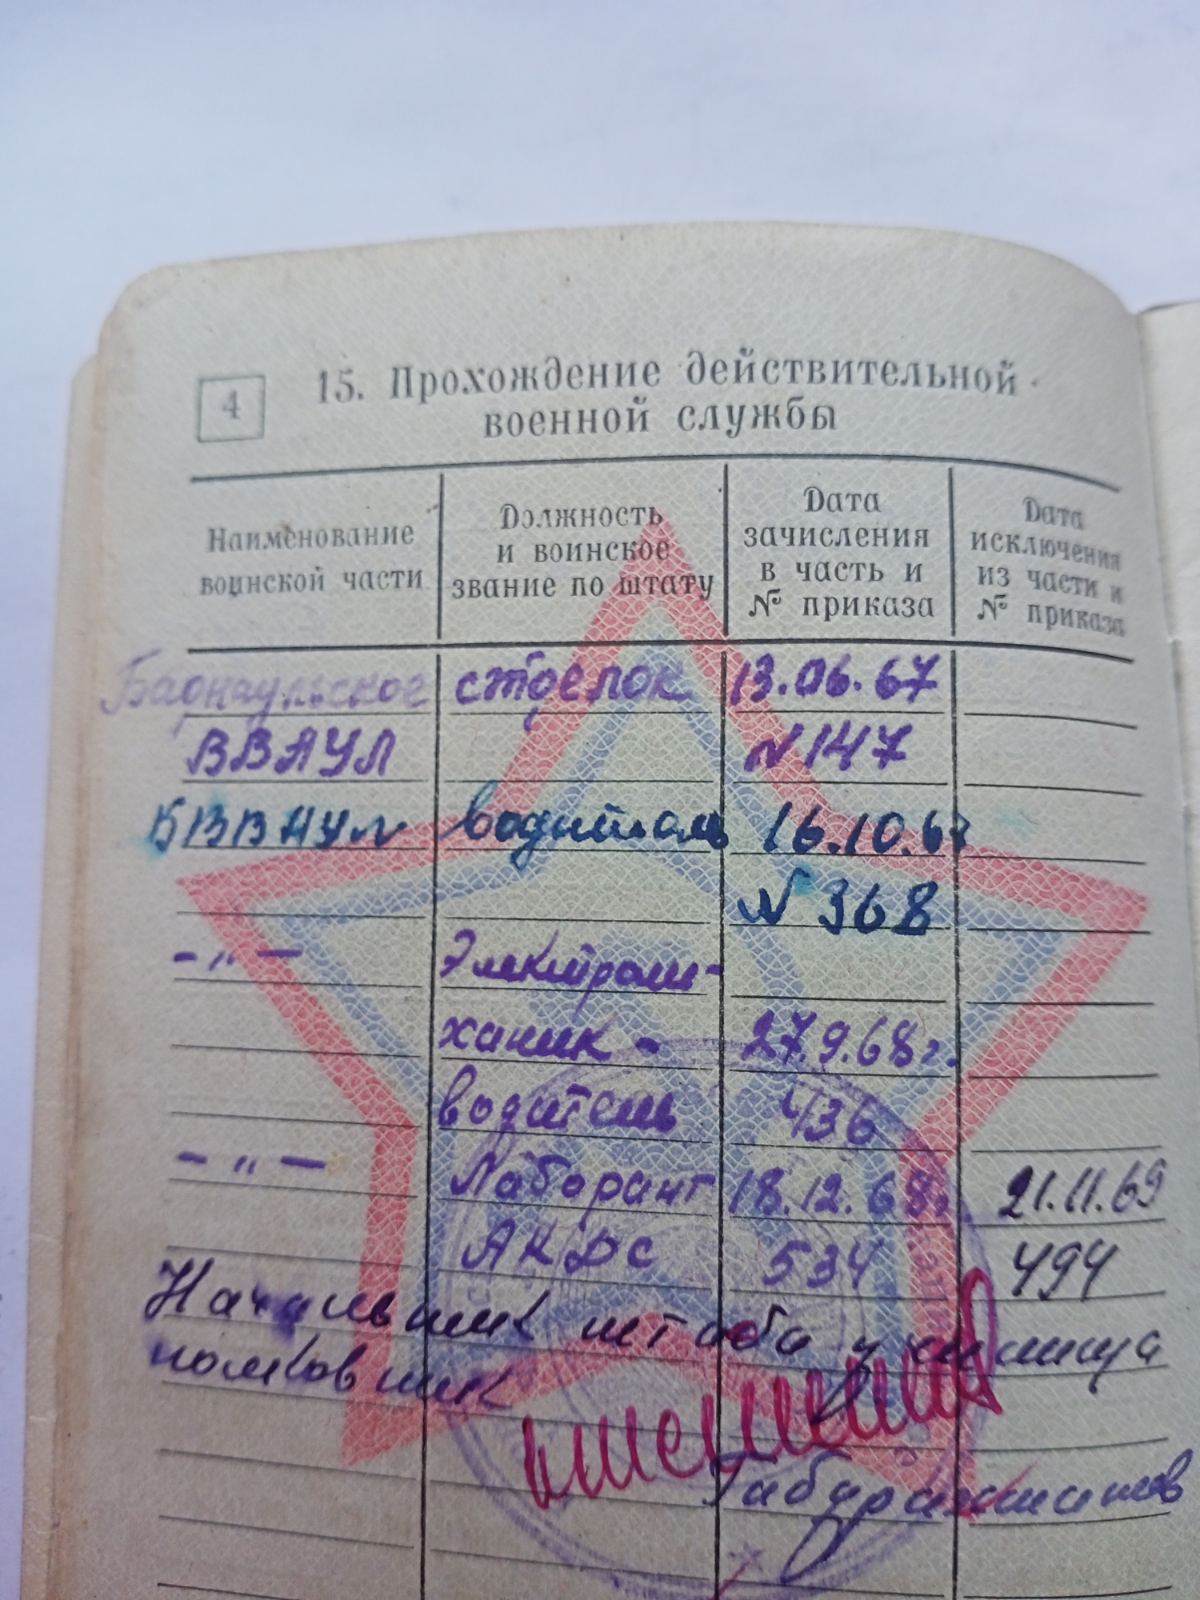 4
15. Прохождение действительной
военной службы
Наименование воинской части
Должность и воинское звание по штату
Дата зачисления в часть и № приказа
Дата исключения из части и № приказа
Барнаульское стрелок 13.06.67
ВВАУЛ N 147
БВВАУЛ водитель 16.10.67
N 368
-„- Электроме-
ханик - 27.9.68г.
водитель 436
-„- Лаборант 18.12.68г. 21.11.69
АКДС 534 494
Начальник штаба училища
полковник